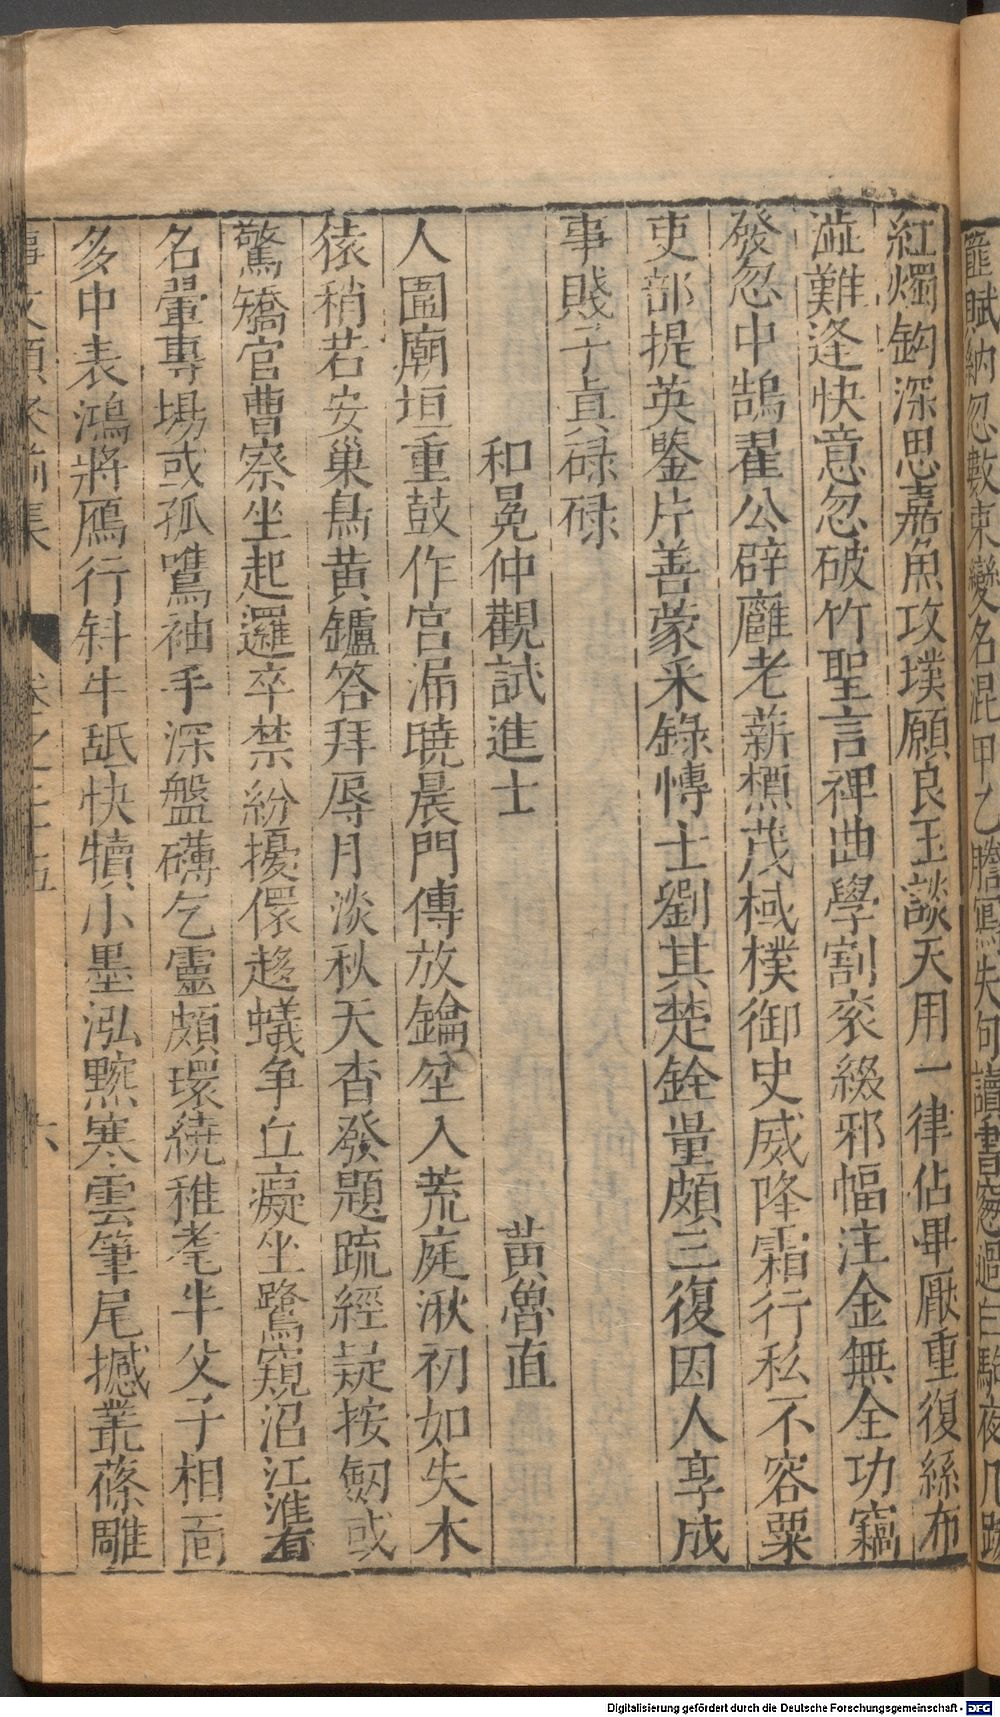 紅燭鈎深思嘉魚攻璞願良玉談天用一律佔畢厭重復絲布
澁難逢快意忽破竹聖言裨曲學割衮綴邪幅注金無全功竊
發忽中鵠翟公辟廱老薪槱茂棫樸御史威降霜行私不容粟
吏部提英鑒片善蒙采錄慱士劉其楚銓量頗三復因人享成
事賤子真碌碌
和晁仲觀試進士
黄魯直
人圖廟垣重鼓作宮漏曉晨門傳放鑰坌入荒庭湫初如失木
猿稍若安巢鳥黄鑪答拜辱月淡秋天杳發題疏經疑按劔或
驚矯官曹察坐起邏卒禁紛擾儇趍蟻争丘癡坐鷺窺沼江淮有
名暈專場或孤鶱袖手深盤礴乞靈頗環繞稚耄半父子相面
多中表鴻將鴈行斜牛舐快犢小墨泓黦寒雲筆尾撼叢篠雕
六
籠賦納忽數束變名混甲乙謄寫失句讀書窓過白駒夜几跋
Digitalisierung gefördert durch die Deutsche Forschungsgemeinschaft - DFG